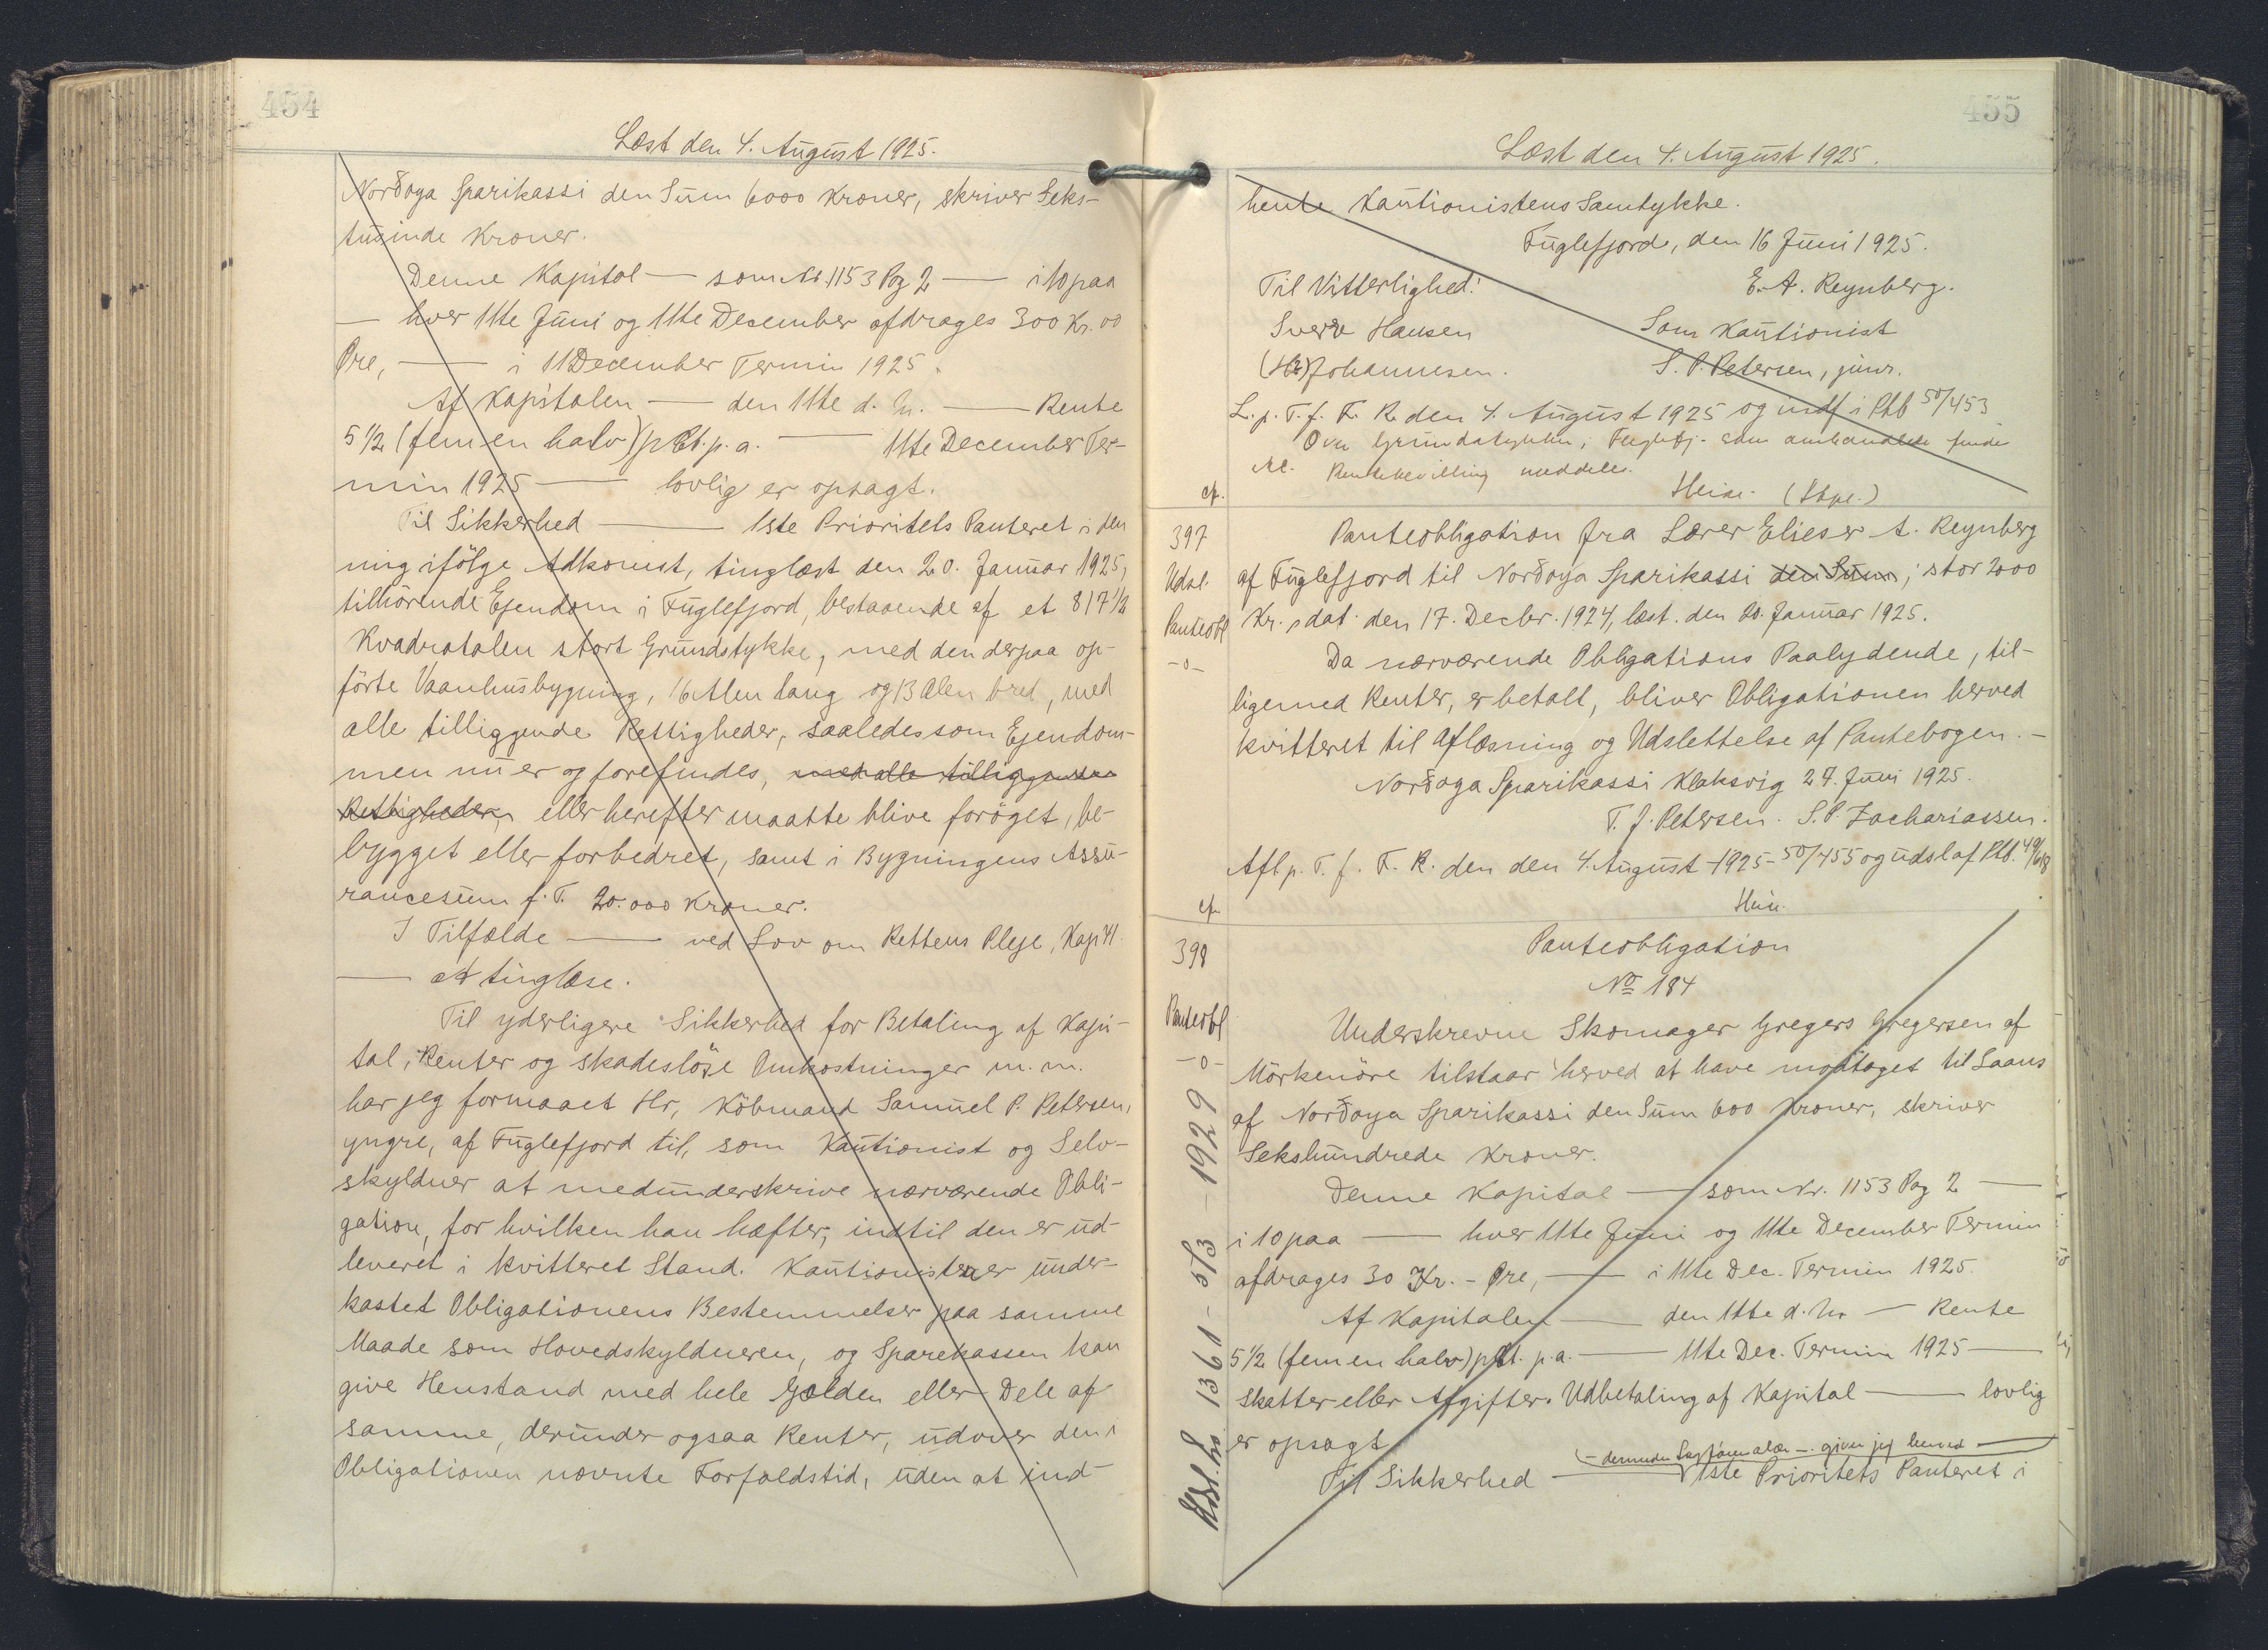 454
Læst den 4. August 1925.
Norðoya Sparikassi den Sum 6000 Kroner, skriver Seks-
tusinde Kroner.
Denne Kapital — som Nr. 1153 Pag 2 — i 10 paa
— hver 11te Juni og 11te December afdrages 300 Kr. 00
Øre, — i 11 December Termin 1925.
Af Kapitalen — den 11te d. M. — Rente
5 1/2 (fem en halv) pCt. p. a. — 11te December Ter-
min 1925 — lovlig er opsagt.
Til Sikkerhed — 1ste Prioritets Panteret i den
mig ifölge Adkomst, tinglæst den 20. Januar 1925,
tilhörende Ejendom i Fuglefjord, bestaaende af et 817 1/2
Kvadratalen stort Grundstykke, med den derpaa op-
förte Vaanhusbygning, 16 Alen lang og 13 Alen bred, med
alle tilliggende Rettigheder, saaledes som Ejendom-
men nu er og forefindes, med alle tilliggende
Rettigheder, eller herefter maatte blive foröget, be-
bygget eller forbedret, samt i Bygningens Assu-
rancesum f. T. 20.000 Kroner.
I Tilfælde — ved Lov om Rettens Pleje, Kap 41
— at tinglæse.
Til yderligere Sikkerhed for Betaling af Kapi-
tal, Renter og skadeslöse Omkostninger m. m.
har jeg formaaet Hr. Köbmand Samuel P. Petersen,
yngre, af Fuglefjord til, som Kautionist og Selv-
skyldner at medunderskrive nærværende Obli-
gation, for hvilken han hæfter, indtil den er ud-
leveret i kvitteret Stand. Kautionisten er under-
kastet Obligationens Bestemmelser paa samme
Maade som Hovedskyldneren, og Sparekassen kan
give Henstand med hele Gælden eller Dele af
samme, derunder ogsaa Renter, udover den i
Obligationen nævnte Forfaldstid, uden at ind-
455
Læst den 4. August 1925.
hente Kautionistens Samtykke.
Fuglefjord, den 16 Juni 1925.
Til Vitterlighed: E. A. Reynberg.
Sverre Hansen Som Kautionist
Johannesen. S. P. Petersen, junr.
L. p. T. f. F. R. den 4. August 1925 og indf i Ptb 50/453
Over Grundstykket i Fuglefj. som
Rentebevilling meddeles.
cf. Heise.
397 Panteobligation fra Lærer Elieser A. Reynberg
Udsl. af Fuglefjord til Norðoya Sparikassi den Sum, stor 2000
Panteobl Kr., dat. den 17. Decbr. 1924, læst. den 20. Januar 1925.
-o- Da nærværende Obligations Paalydende, til-
ligemed Renter, er betalt, bliver Obligationen herved
kvitteret til Aflæsning og Udslettelse af Pantebogen.-
Norðoya Sparikassi Klaksvig 27. Juni 1925.
T. J. Petersen. S. P. Zachariassen.
Afl p. T. f. F. R. den den 4. August 1925 - 50/455 og udsl af Ptb. 49/618
cf. Heise.
398 Panteobligation
No 184
Panteobl Underskrevne Skomager Gregers Gregersen af
-o- Mörkenöre tilstaar herved at have modtaget til Laans
af Norðoya Sparikassi den Sum 600 Kroner, skriver
Sekshundrede Kroner.
Denne Kapital — som Nr. 1153 Pag 2 —
i 10 paa — hver 11te Juni og 11te December Termin
afdrages 30 Kr. - Øre, — i 11te Dec. Termin 1925.
Af Kapitalen — den 11te d. M. — Rente
5 1/2 (fem en halv) pCt. p. a. — 11te Dec. Termin 1925 —
Skatter eller Afgifter. Udbetaling af Kapital — lovlig
er opsagt
— derunder — giver jeg herved —
Til Sikkerhed — 1ste Prioritets Panteret i
1361 - 5/3 - 1929